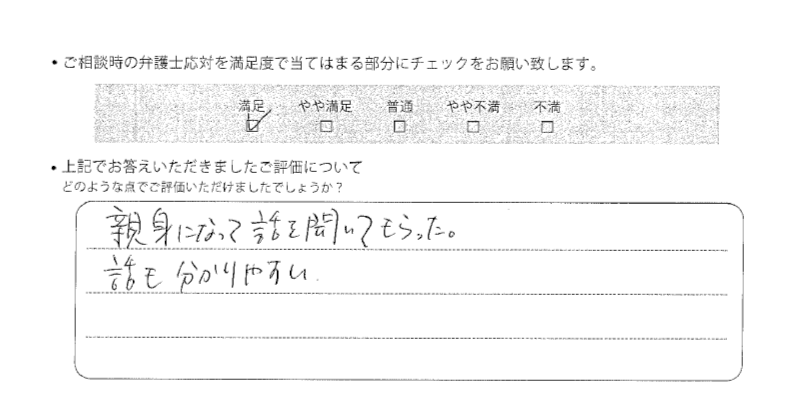 ・ご相談時の弁護士応対を満足度で当てはまる部分にチェックをお願い致します。
満足 やや満足 普通 やや不満 不満
☑ □ □ □ □
・上記でお答えいただきましたご評価について
どのような点でご評価いただけましたでしょうか？
親身になって話を聞いてもらった。
話も分かりやすい